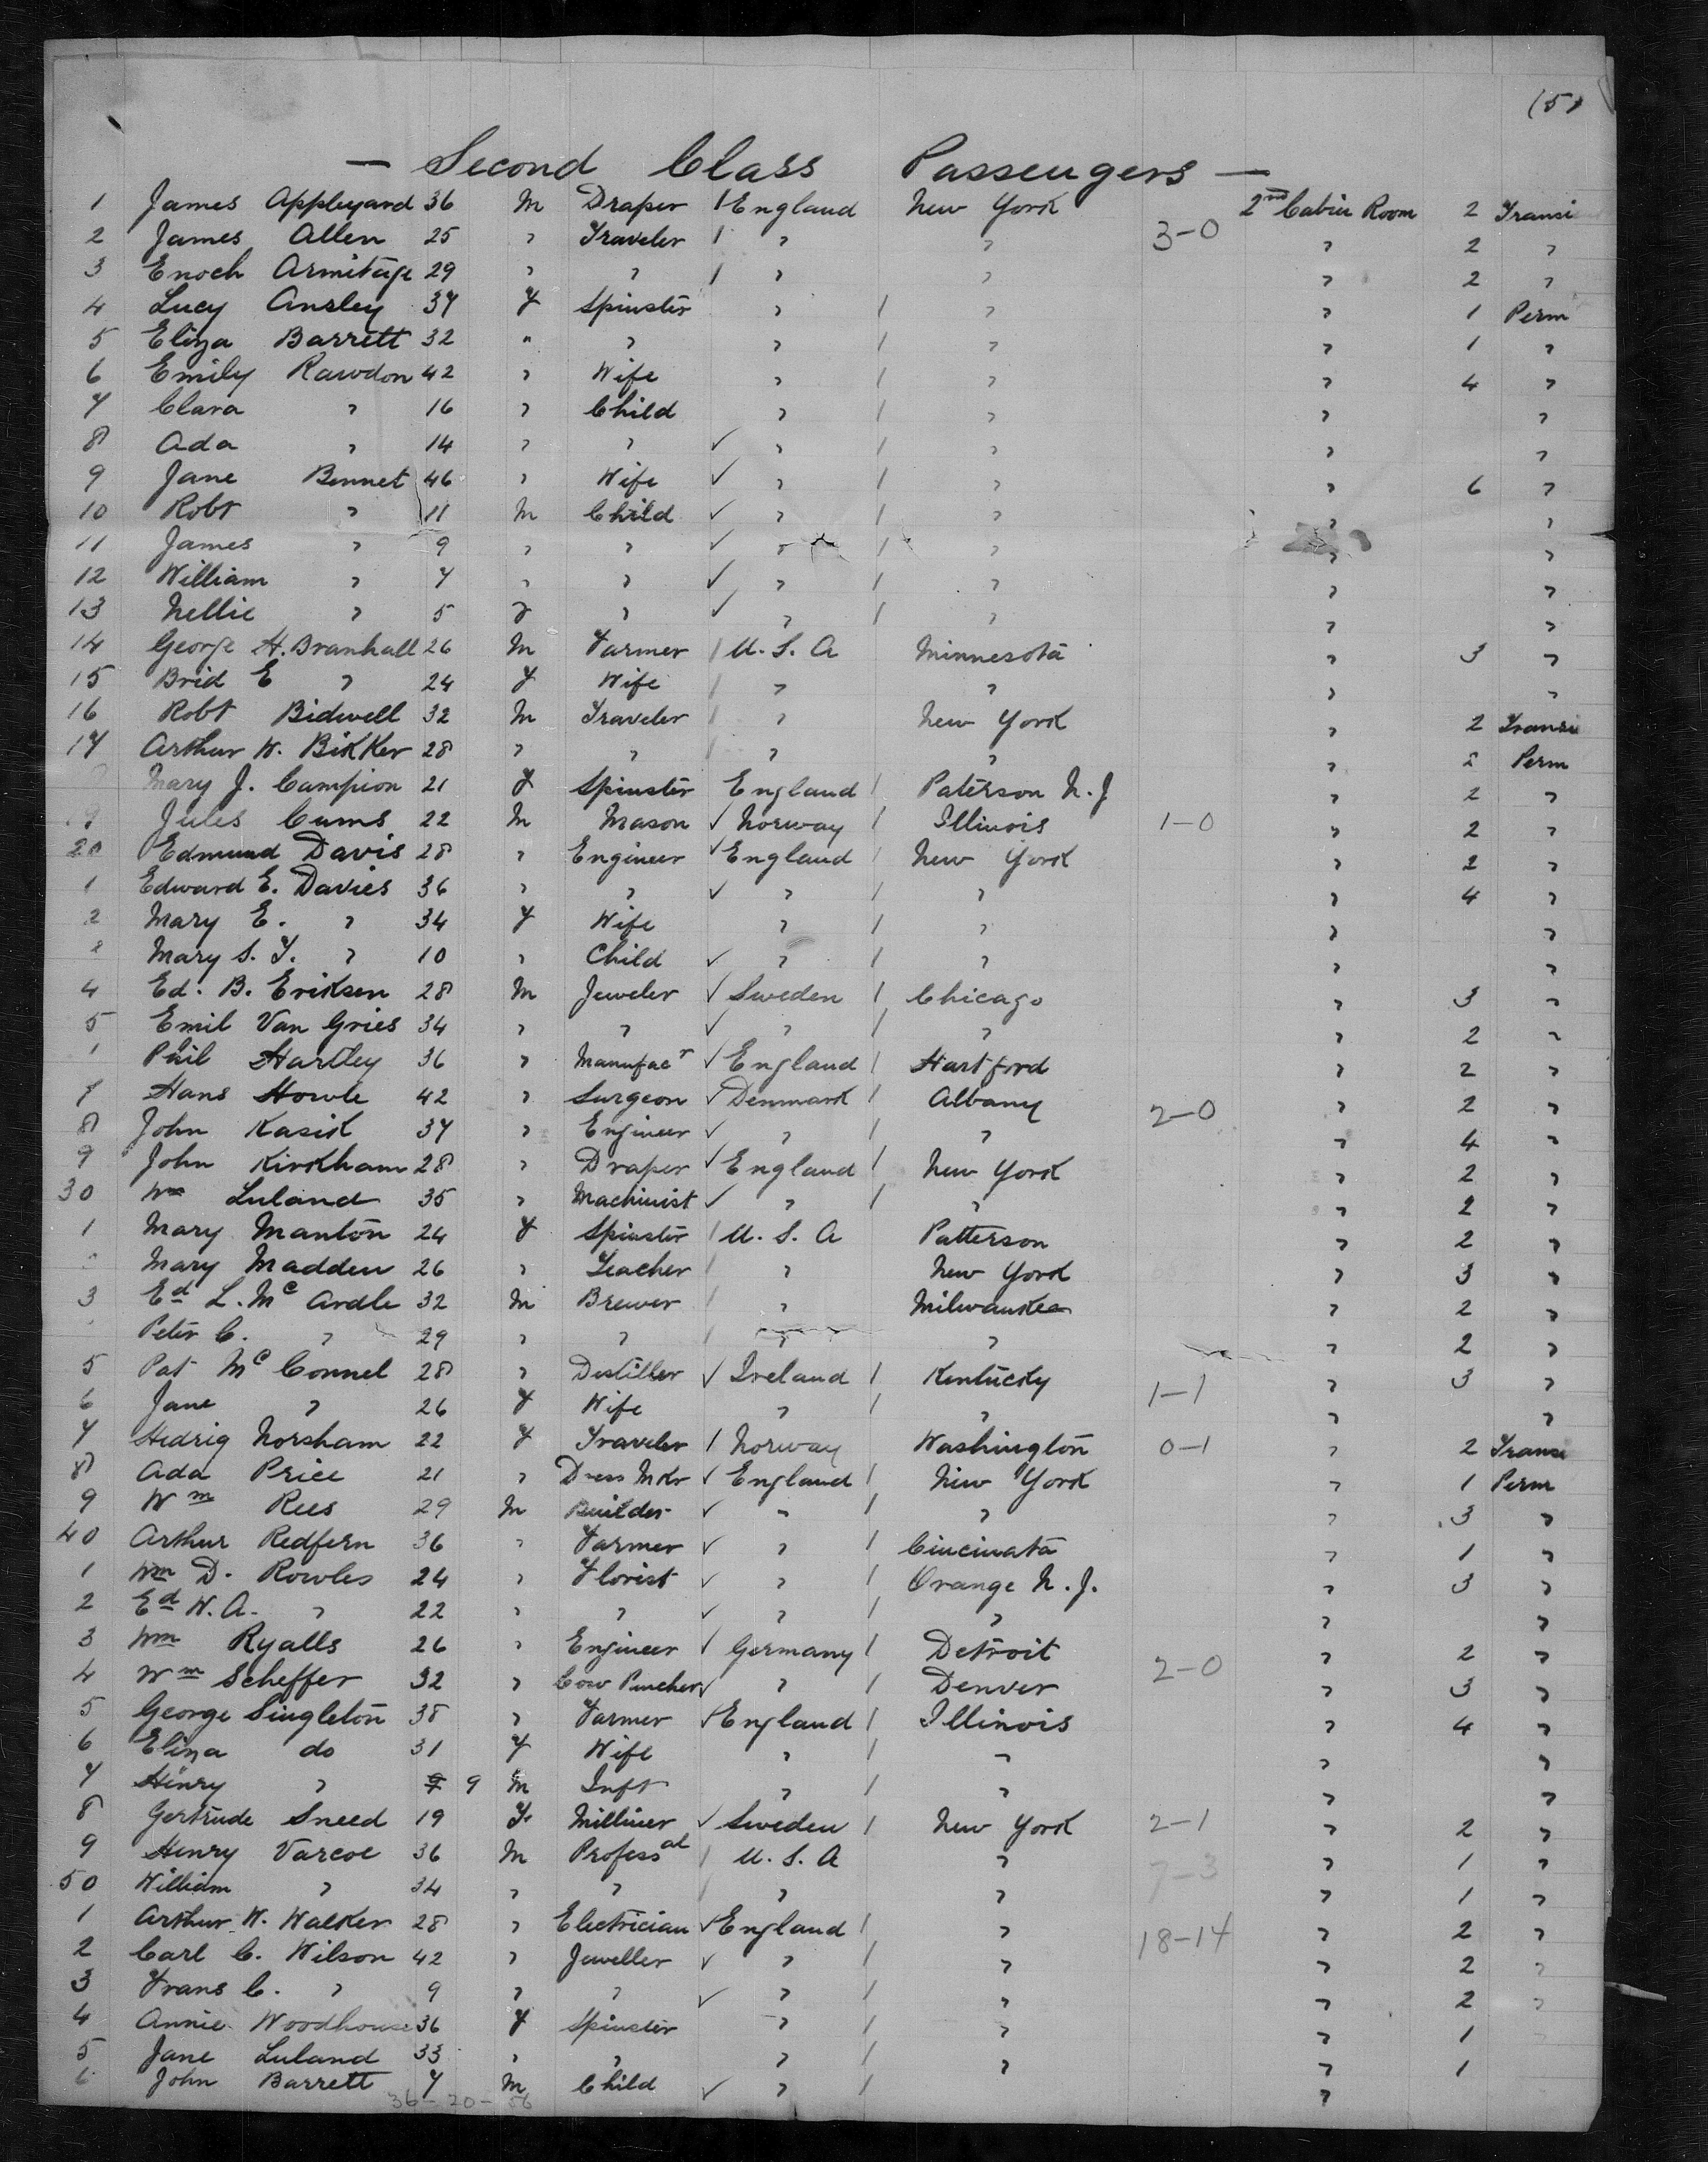 (5)
— Second Class Passengers —
1 James Appleyard 36 M Draper / England New York 2nd Cabin Room 2 Transi
2 James Allen 25 " Traveler / " " 3-0 " 2 "
3 Enoch Armitage 29 " " / " " " 2 "
4 Lucy Ansley 37 F Spinster " / " " 1 Perm
5 Eliza Barrett 32 " " " / " " 1 "
6 Emily Rawdon 42 " Wife " / " " 4 "
7 Clara " 16 " Child " / " " "
8 Ada " 14 " " ✓ " " " "
9 Jane Bennet 46 " Wife ✓ " / " " 6 "
10 Robt " 11 M Child ✓ " / " " "
11 James " 9 " " ✓ " / " " "
12 William " 7 " " ✓ " / " " "
13 Nellie " 5 F " ✓ " / " " "
14 George H. Branhall 26 M Farmer / U. S. A Minnesota " 3 "
15 Brid E " 24 F Wife / " " " "
16 Robt Bidwell 32 M Traveler / " New York " 2 Transi
17 Arthur W. Bikker 28 " " / " " " 2 Perm
Mary J. Campion 21 F Spinster England / Paterson N. J " 2 "
9 Jules Cums 22 M Mason ✓ Norway / Illinois 1-0 " 2 "
20 Edmund Davis 28 " Engineer ✓ England / New York " 2 "
1 Edward E. Davies 36 " " ✓ " / " " 4 "
2 Mary E. " 34 F Wife " / " " "
Mary S. F. " 10 " Child ✓ " / " " "
4 Ed. B. Eriksen 28 M Jeweler ✓ Sweden / Chicago " 3 "
5 Emil Van Gries 34 " " ✓ " / " " 2 "
Phil Hartley 36 " Manufacr ✓ England / Hartford " 2 "
7 Hans Howle 42 " Surgeon ✓ Denmark / Albany 2-0 " 2 "
8 John Kasik 37 " Engineer ✓ " / " " 4 "
9 John Kirkham 28 " Draper ✓ England / New York " 2 "
30 Wm Luland 35 " Machinist ✓ " / " " 2 "
1 Mary Manton 24 F Spinster / U. S. A Patterson " 2 "
Mary Madden 26 " Teacher / " New York " 3 "
3 Ed L. Mc Ardle 32 M Brewer / " Milwaukee " 2 "
Peter C. " 29 " " / " " " 2 "
5 Pat Mc Connel 28 " Distiller ✓ Ireland / Kentucky " 3 "
6 Jane " 26 F Wife " / " 1-1 " "
7 Hedrig Norsham 22 F Traveler / Norway Washington 0-1 " 2 Transi
8 Ada Price 21 " Dress Mkr ✓ England / New York " 1 Perm
9 Wm Rees 29 M Builder ✓ " / " " 3 "
40 Arthur Redfern 36 " Farmer ✓ " / Cincinata " 1 "
1 Wm D. Rowles 24 " Florist ✓ " / Orange N. J. " 3 "
2 Ed W. A. " 22 " " ✓ " / " " "
3 Wm Ryalls 26 " Engineer ✓ Germany / Detroit " 2 "
4 Wm Scheffer 32 " Cow Puncher ✓ " / Denver 2-0 " 3 "
5 George Singleton 38 " Farmer ✓ England / Illinois " 4 "
6 Eliza do 31 F Wife " / " " "
7 Henry " 9 M Inft " / " " "
8 Gertrude Sneed 19 F. Milliner ✓ Sweden / New York 2-1 " 2 "
9 Henry Varcoe 36 M Professal / U. S. A " 7-3 " 1 "
50 William " 34 " " / " " " 1 "
1 Arthur W. Walker 28 " Electrician ✓ England / " 18-14 " 2 "
2 Carl C. Wilson 42 " Jeweller ✓ " / " " 2 "
3 Frans C. " 9 " " ✓ " / " " 2 "
4 Annie Woodhouse 36 F Spinster " / " " 1
5 Jane Luland 33 " " " / " " 1
6 John Barrett 7 M Child ✓ " / "
36-20-56